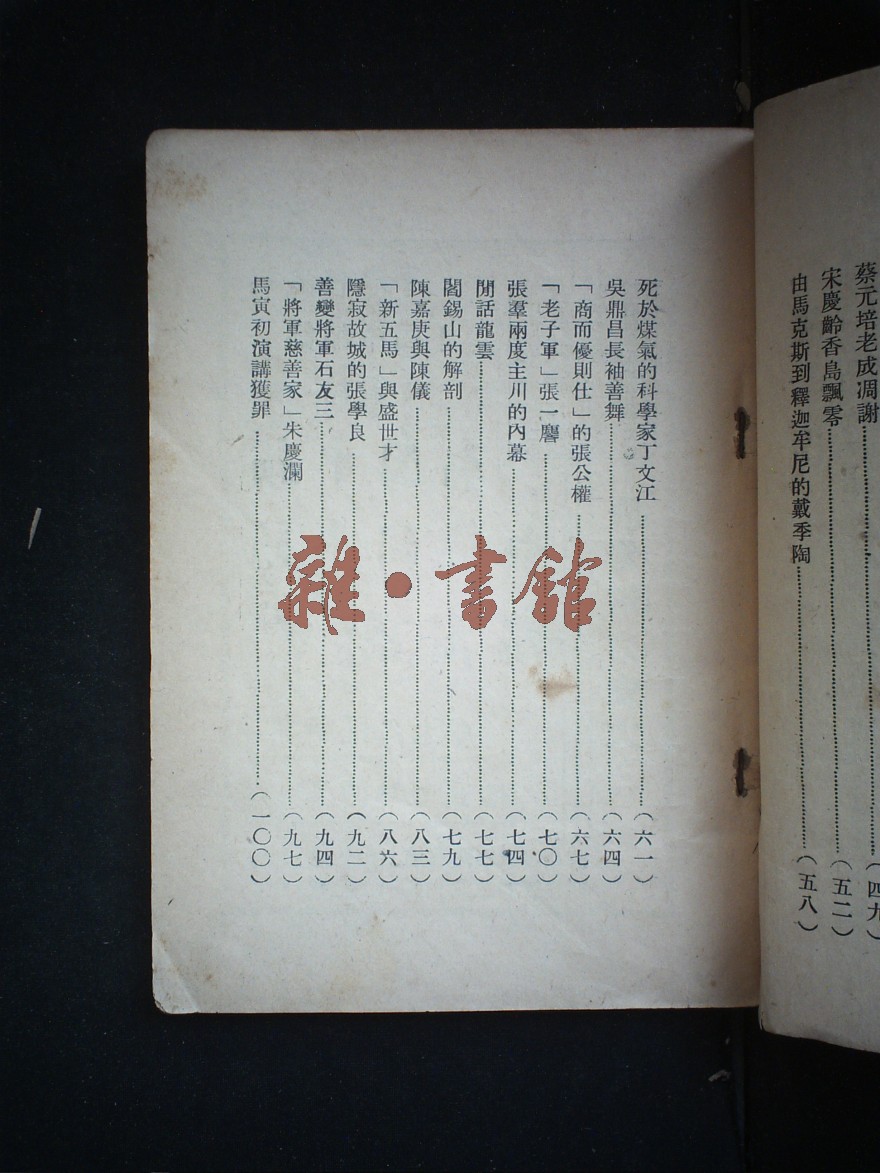 蔡元培老成凋謝……(四九
宋慶齡香島飄零……(五二)
由馬克斯到釋迦牟尼的戴季陶……(五八)
死於煤氣的科學家丁文江……(六一)
吳鼎昌長袖善舞……(六四)
「商而優則仕」的張公權……(六七)
「老子軍」張一麐……(七〇)
張羣兩度主川的內幕……(七四)
閒話龍雲……(七七)
閻錫山的解剖……(七九)
陳嘉庚與陳儀……(八三)
「新五馬」與盛世才……(八六)
隱寂故城的張學良……(九二)
善變將軍石友三……(九四)
「將軍慈善家」朱慶瀾……(九七)
馬寅初演講獲罪……(一〇〇)
雜·書館